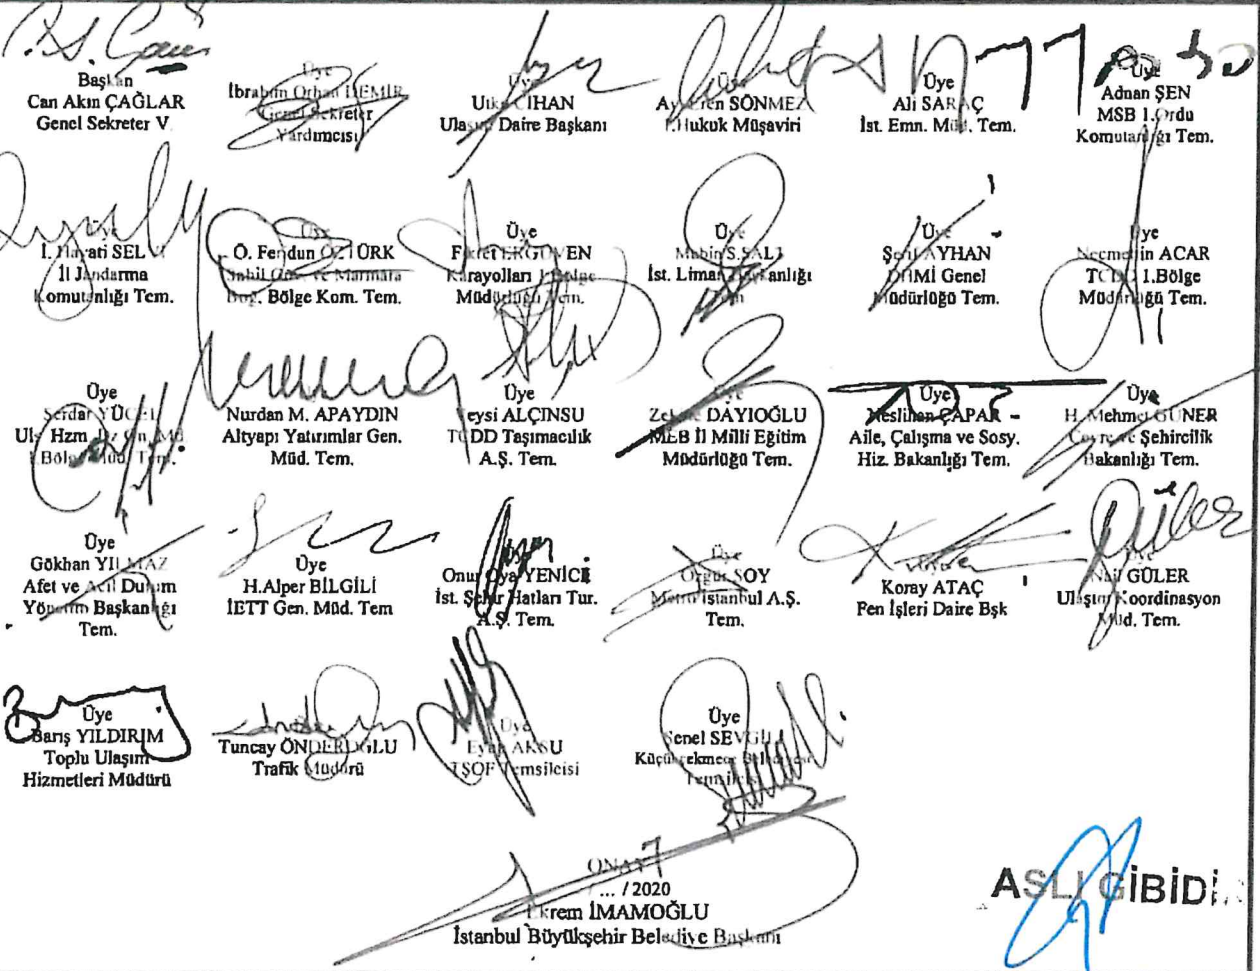 Başkan
Can Akın ÇAĞLAR
Genel Sekreter V.
Üye
İbrahim Orhan DEMİR
Genel Sekreter
Yardımcısı
Üye
Utku CİHAN
Ulaşım Daire Başkanı
Üye
Eren SÖNMEZ
1.Hukuk Müşaviri
Üye
Ali SARAÇ
İst. Emn. Müd. Tem.
Üye
Adnan ŞEN
MSB 1.Ordu
Komutanlığı Tem.
Üye
İ. Hayati SELVİ
İl Jandarma
Komutanlığı Tem.
Üye
Ö. Feridun ÖZTÜRK
Sahil Güv. ve Marmara
Boğ. Bölge Kom. Tem.
Üye
Fikret ERGÜVEN
Karayolları 1.Bölge
Müdürlüğü Tem.
Üye
S.SALI
İst. Liman Başkanlığı
Tem
Üye
Şerif AYHAN
DHMİ Genel
Müdürlüğü Tem.
Üye
Necmettin ACAR
TCDD 1.Bölge
Müdürlüğü Tem.
Üye
Serdar YÜCEL
Ulş. Hzm.
1.Bölge Müd. Tem.
Nurdan M. APAYDIN
Altyapı Yatırımlar Gen.
Müd. Tem.
Üye
Veysi ALÇINSU
TCDD Taşımacılık
A.Ş. Tem.
Üye
DAYIOĞLU
MEB İl Milli Eğitim
Müdürlüğü Tem.
Üye
Neslihan ÇAPAR
Aile, Çalışma ve Sosy.
Hiz. Bakanlığı Tem.
Üye
H. Mehmet GÜNER
Çevre ve Şehircilik
Bakanlığı Tem.
Üye
Gökhan YILMAZ
Afet ve Acil Durum
Yönetim Başkanlığı
Tem.
Üye
H.Alper BİLGİLİ
İETT Gen. Müd. Tem
Onur Oya YENİCE
İst. Şehir Hatları Tur.
A.Ş. Tem.
Üye
Özgür SOY
Metro İstanbul A.Ş.
Tem.
Koray ATAÇ
Fen İşleri Daire Bşk
Üye
Nail GÜLER
Ulaşım Koordinasyon
Müd. Tem.
Üye
Barış YILDIRIM
Toplu Ulaşım
Hizmetleri Müdürü
Tuncay ÖNDEROĞLU
Trafik Müdürü
Üye
Eyüp AKSU
TŞOF Temsilcisi
Üye
Şenel SEVGİLİ
Küçükçekmece Belediyesi
Temsilcisi
ONAY
... / 2020
Ekrem İMAMOĞLU
İstanbul Büyükşehir Belediye Başkanı
ASLI GİBİDİR